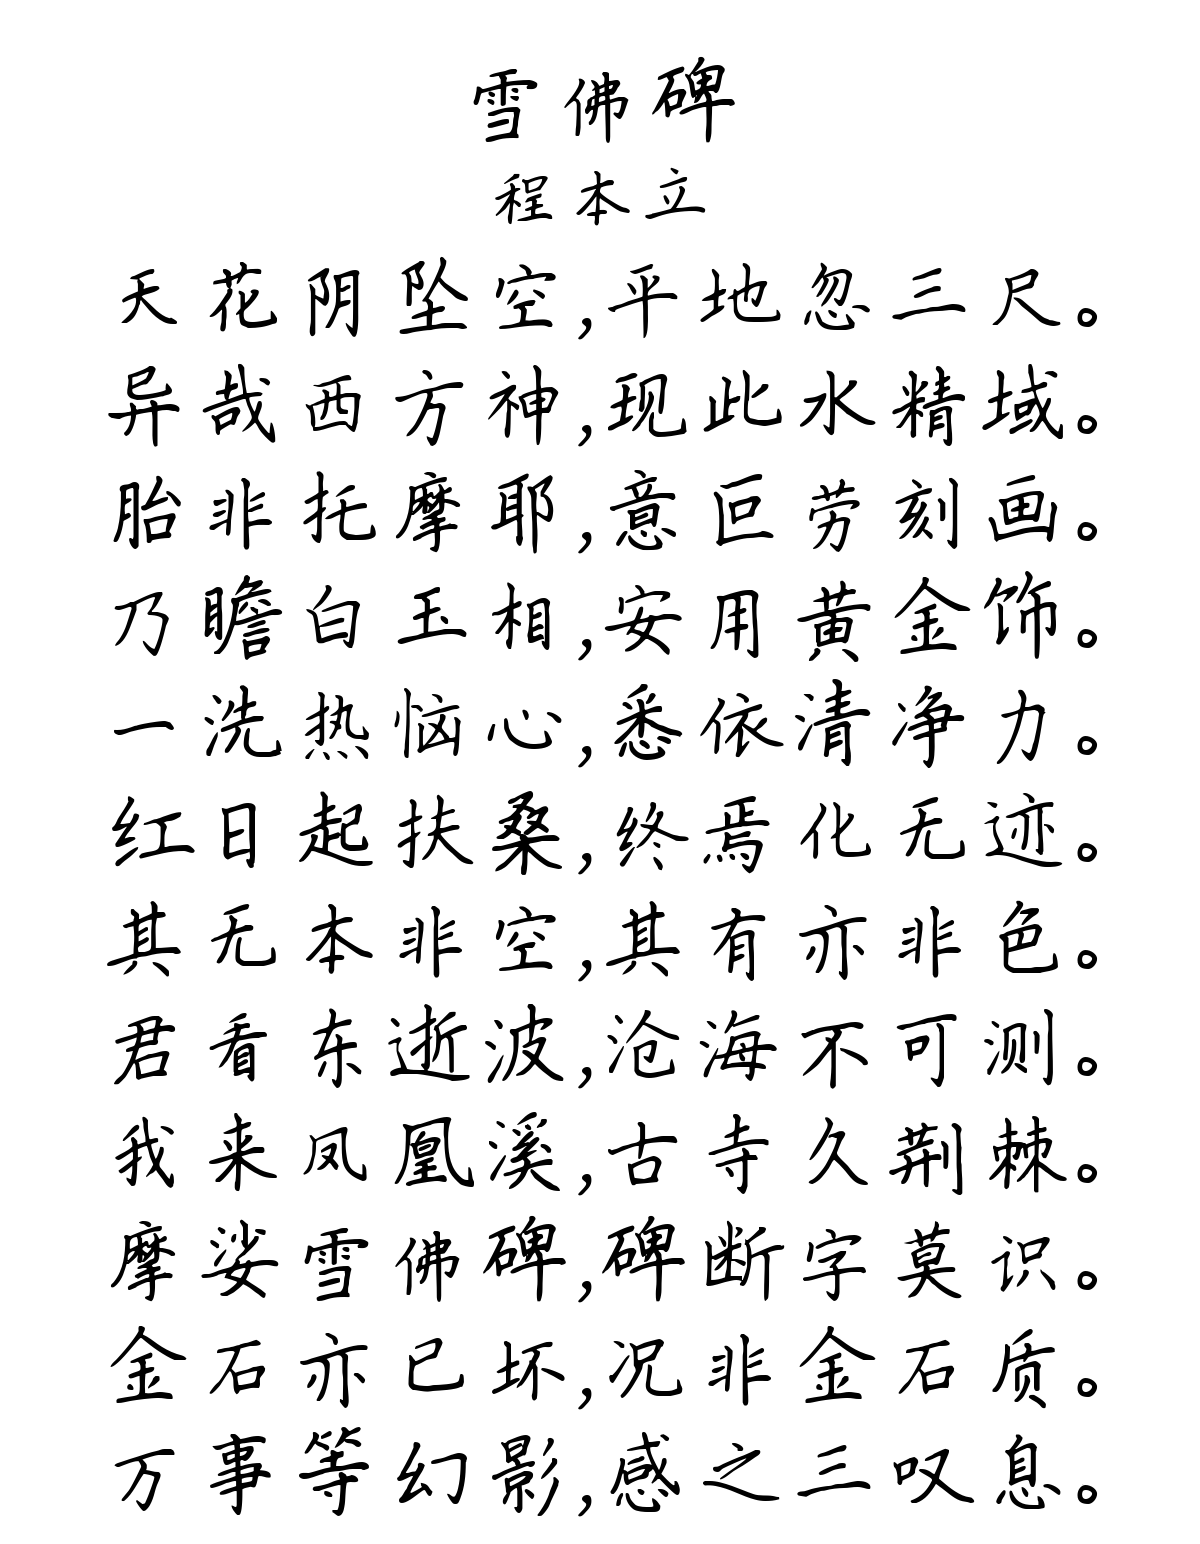 雪佛碑
程本立
天花阴坠空,平地忽三尺。
异哉西方神,现此水精域。
胎非托摩耶,意叵劳刻画。
乃瞻白玉相,安用黄金饰。
一洗热恼心,悉依清净力。
红日起扶桑,终焉化无迹。
其无本非空,其有亦非色。
君看东逝波,沧海不可测。
我来凤凰溪,古寺久荆棘。
摩娑雪佛碑,碑断字莫识。
金石亦已坏,况非金石质。
万事等幻影,感之三叹息。